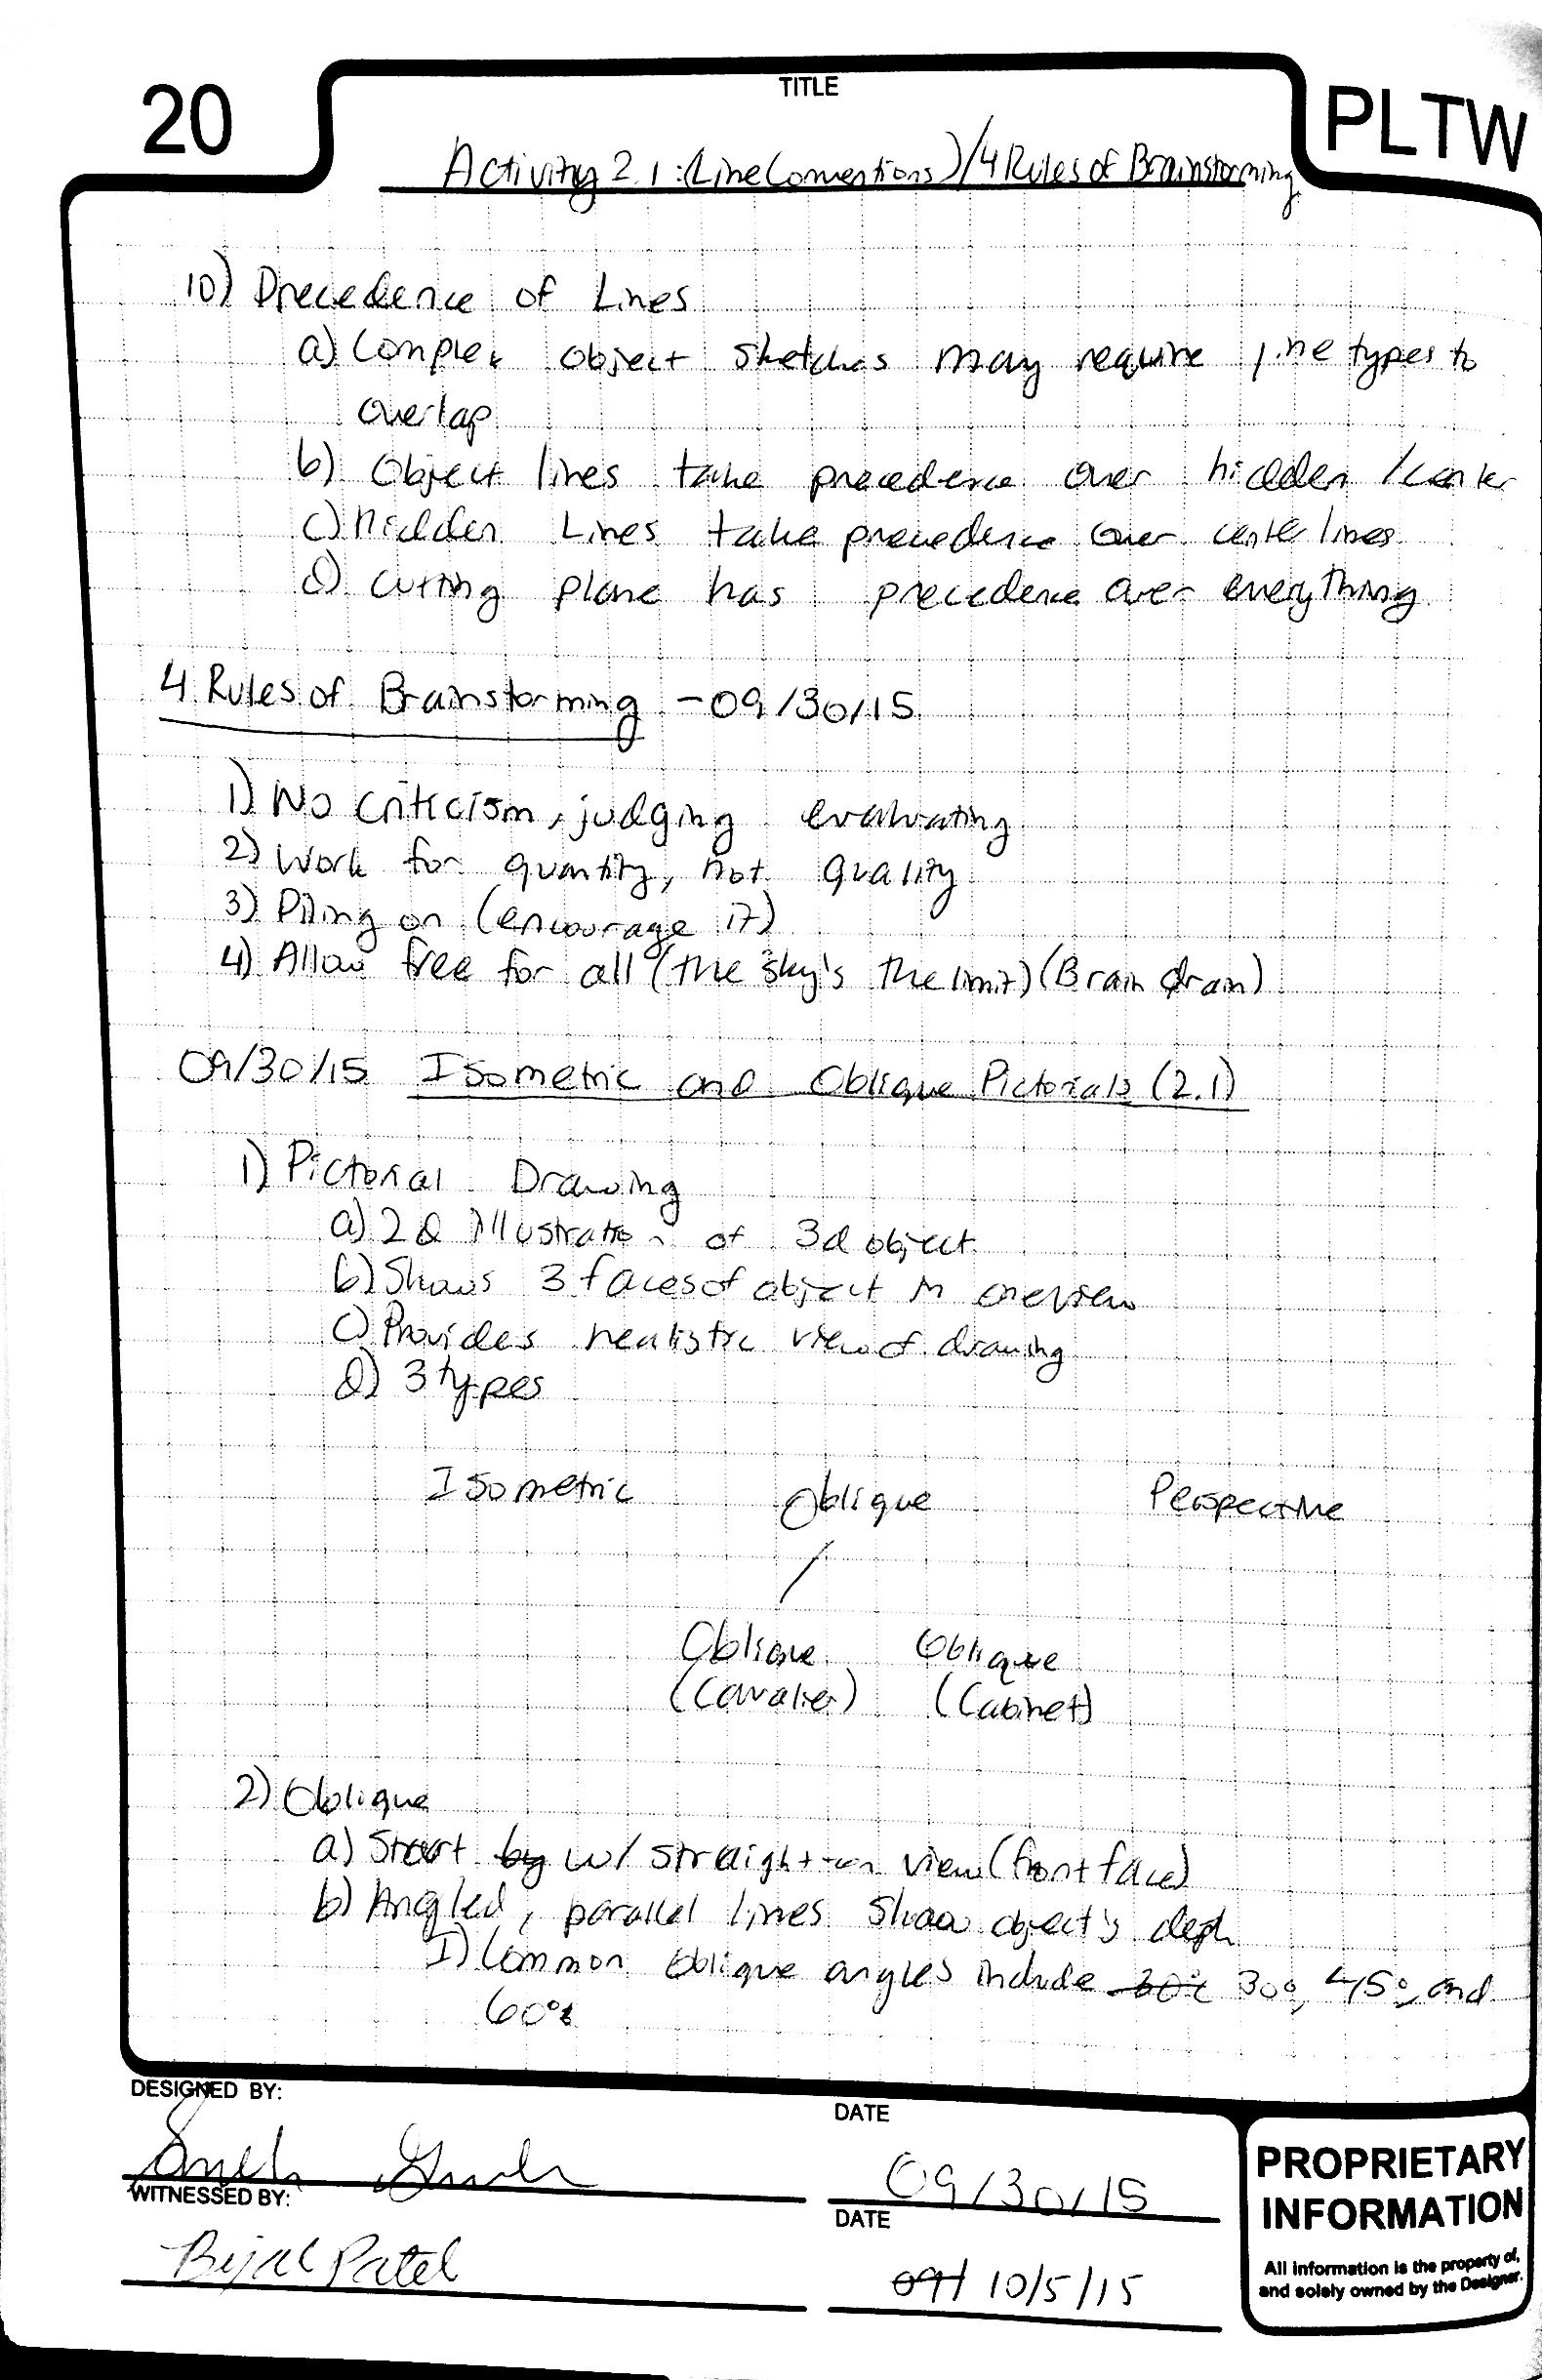 20
TITLE
PLTW
Activity 2.1: (Line Conventions)/4 Rules of Brainstorming
10) Precedence of Lines
a) Complex object sketches may require line types to
overlap
b) Object lines take precedence over hidden /center
c) Hidden Lines take precedence over center lines
d) Cutting plane has precedence over everything
4 Rules of Brainstorming - 09/30/15
1) No criticism, judging evaluating
2) Work for quantity, not quality
3) Piling on (encourage it)
4) Allow free for all (the sky's the limit) (Brain drain)
09/30/15 Isometric and Oblique Pictorials (2.1)
1) Pictorial Drawing
a) 2d illustration of 3d object
b) Shows 3 faces of object in one view
c) Provides realistic view of drawing
d) 3 types
Isometric Oblique Perspective
Oblique Oblique
(Cavalier) (Cabinet)
2) Oblique
a) Start by w/ straight-on view (front face)
b) Angled, parallel lines show object's depth
I) Common oblique angles include 30° 30°, 45°, and
60°
DESIGNED BY:
DATE
09/30/15
WITNESSED BY:
DATE
Bijal Patel
09/ 10/5/15
PROPRIETARY
INFORMATION
All information is the property of,
and solely owned by the Designer.